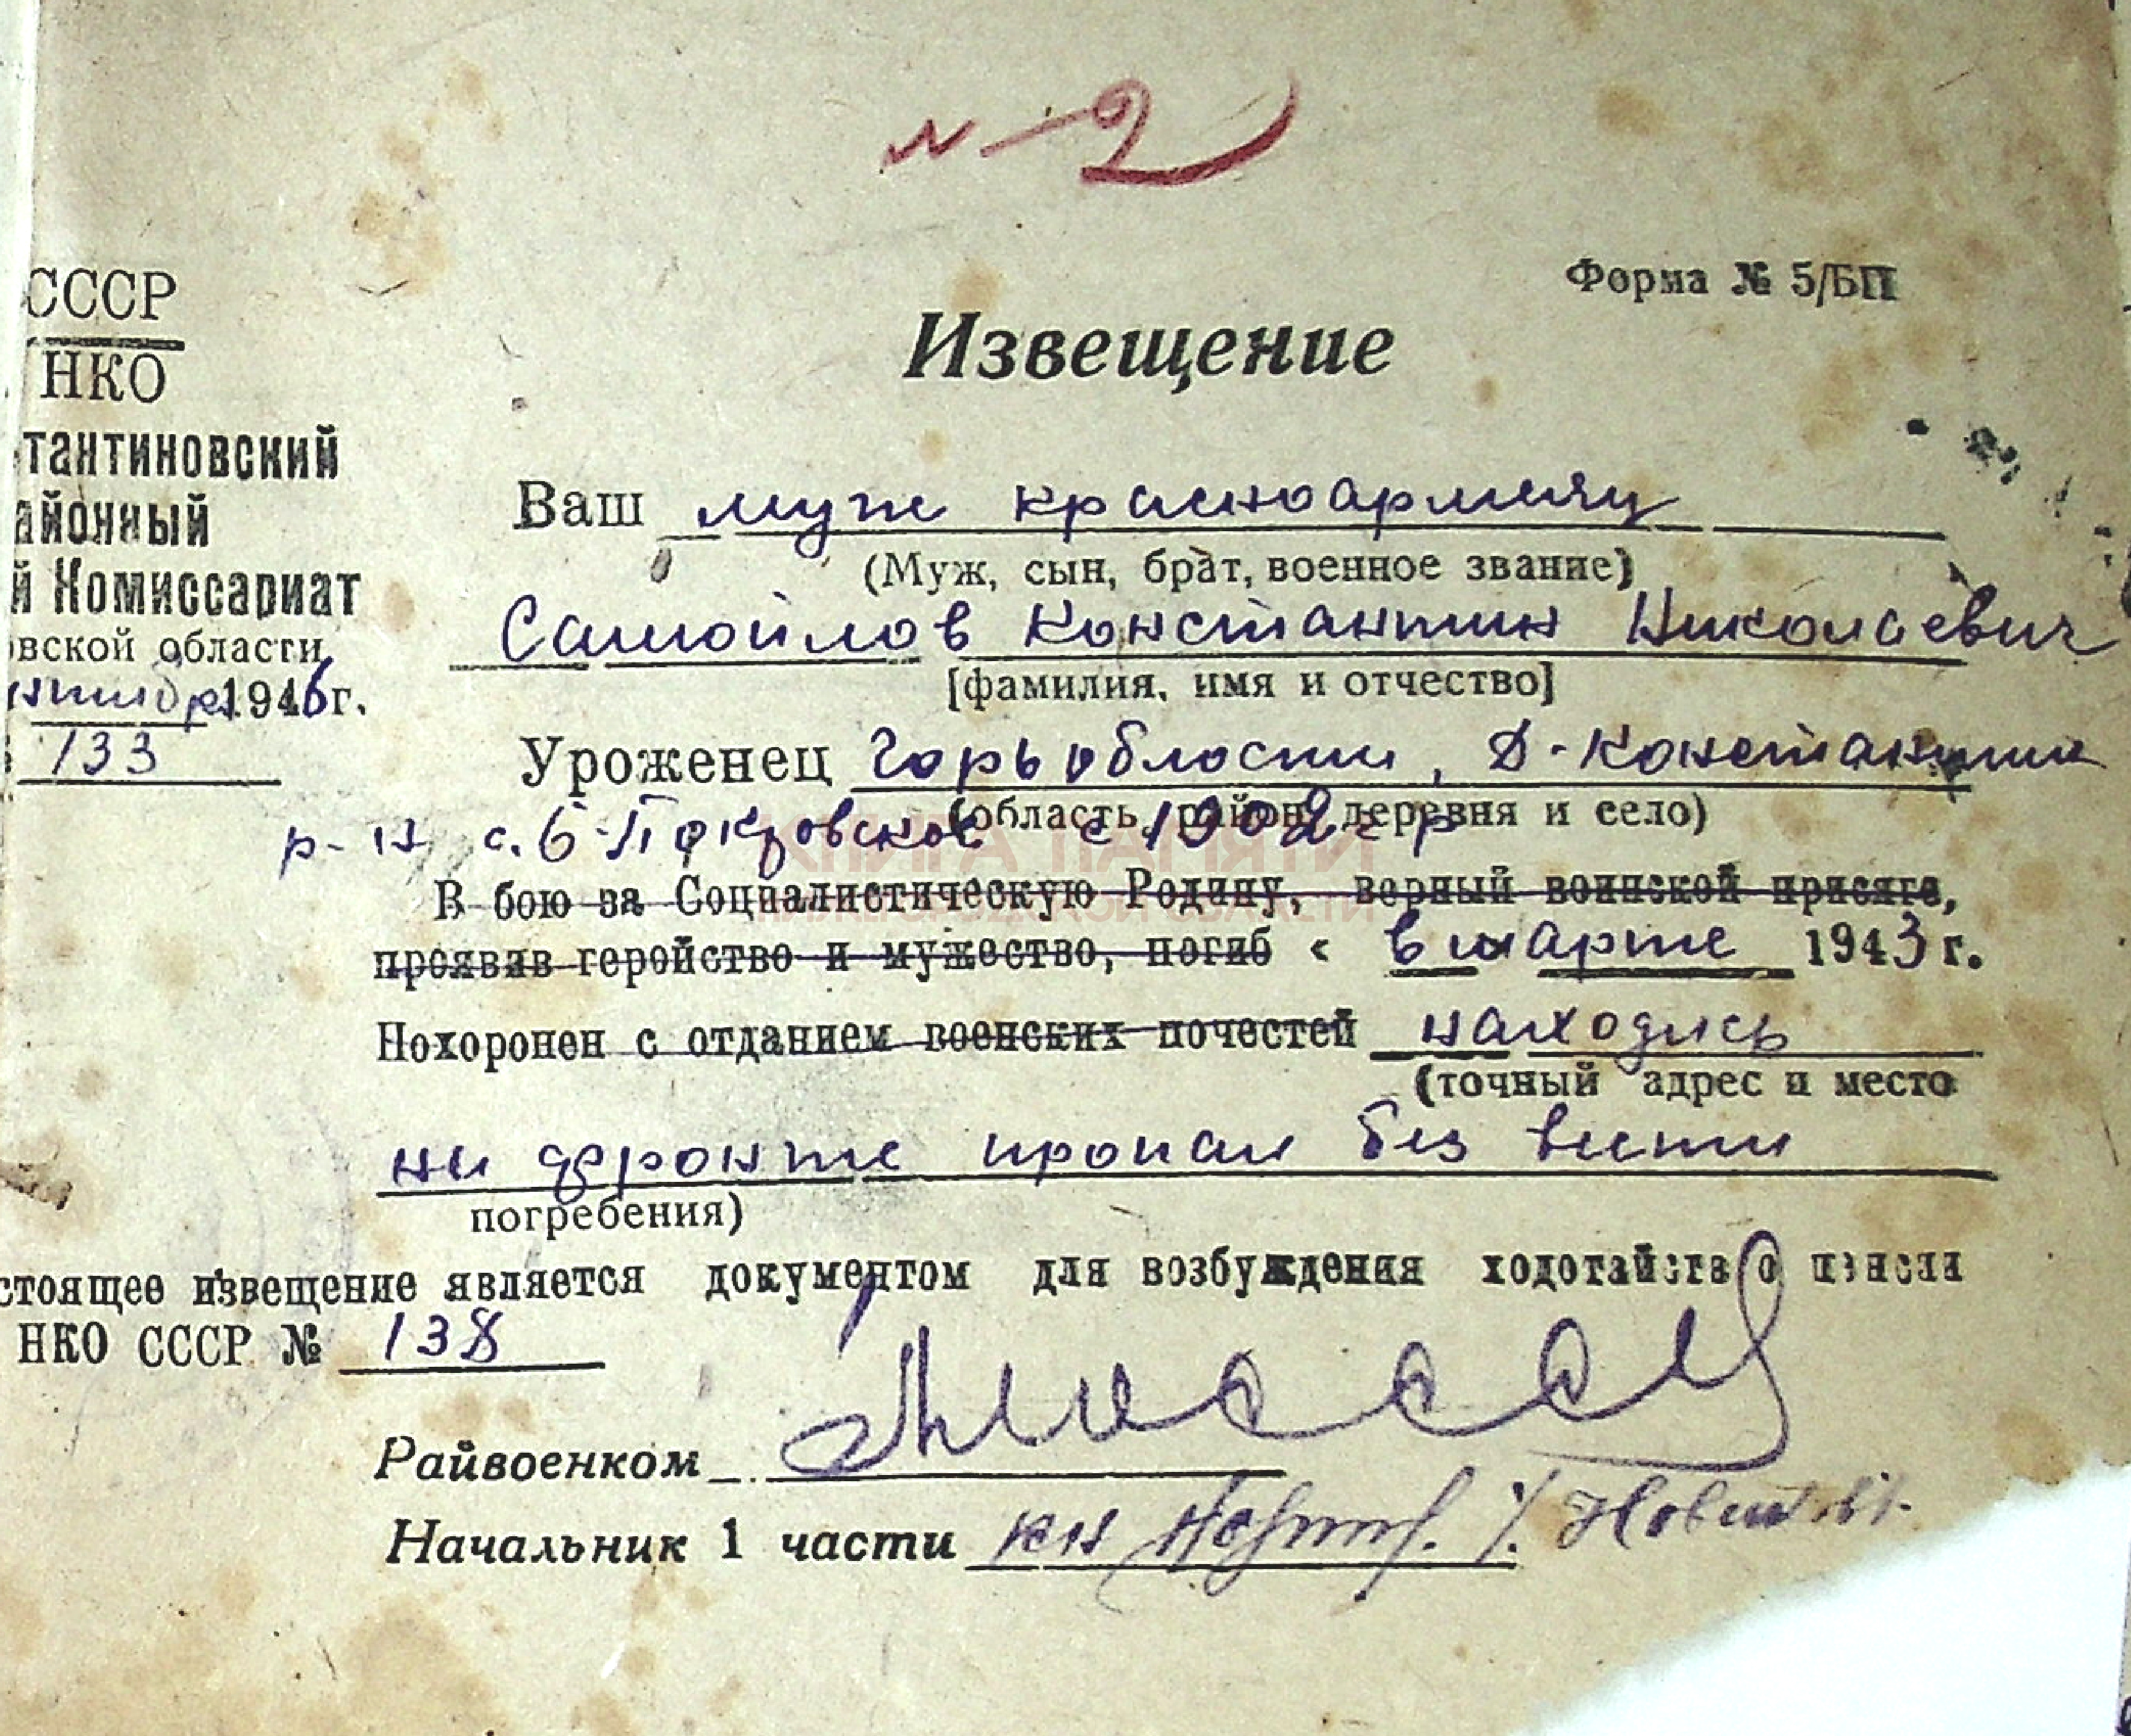 № 2
Форма № 5/БП
СССР
НКО
тантиновский
айонный
й Комиссариат
овской области
нтября 1946 г.
133
Извещение
Ваш муж красноармеец
(Муж, сын, брат, военное звание)
Самойлов Константин Николаевич
[фамилия, имя и отчество]
Уроженец Горь области, Д-Константин
(область, район, деревня и село)
р-н с. Б-Покровское с 1902 г р
КНИГА ПАМЯТИ
НИЖЕГОРОДСКОЙ ОБЛАСТИ
В бою за Социалистическую Родину, верный воинской присяге,
проявив геройство и мужество, погиб « в марте 1943 г.
Похоронен с отданием военских почестей находясь
(точный адрес и место
на фронте пропал без вести
погребения)
стоящее извещение является документом для возбуждения ходотайства о пенсии
НКО СССР № 138
Райвоенком
Начальник 1 части